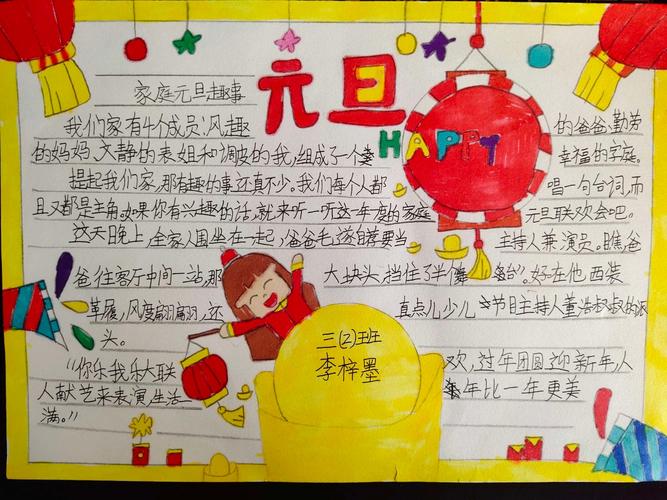 元旦
HAPPY
家庭元旦趣事
我们家有4个成员:风趣的爸爸、勤劳
的妈妈、文静的表姐和调皮的我,组成了一个幸福的家庭。
提起我们家,那有趣的事还真不少。我们每个人都唱一句台词,而
且又都是主角。如果你有兴趣的话,就来听一听这一年度的家庭元旦联欢会吧。
这天晚上,全家人围坐在一起,爸爸毛遂自荐要当主持人兼演员。瞧,爸
爸往客厅中间一站,那大块头挡住了半个舞台。好在他西装
革履,风度翩翩,还真点儿少儿节目主持人董浩叔叔的派
头。
“你乐我乐大联欢,过年团圆迎新年,人
人献艺来表演,生活年比一年更美
满。”
三(2)班
李梓墨